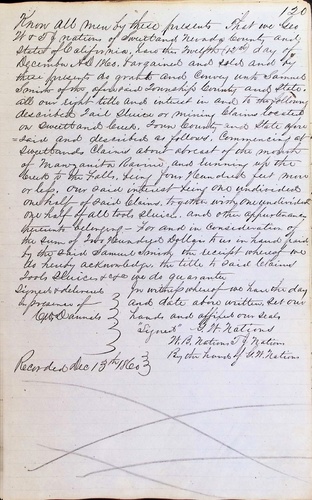 120
Know All men by these presents That we Geo
W & T J Nations of Sweetland Nevada County and
State of California, have this Twelfth 12th day of
December A.D. 1860. bargained and sold and by
these presents do grant and Convey unto Samuel
Smith of aforesaid Township County and State.
all our right title and interest in and to the following
described Tail Sluice or mining Claims located
on Sweetland Creek. Town County and State afore
=said and described as follows. Commencing at
Sweetlands Claims about abreast of the mouth
of Manzanita Ravine, and running up the
Creek to the Falls, being four Hundred feet more
or less, our said interest being one undivided
one half of said Claims. together with one undivided
one half of all tools Sluice. and other appurtenances
thereunto belonging – For and in Consideration of
the Sum of Two Hundred Dollars to us in hand paid
by the Said Samuel Smith the receipt whereof we
do hereby acknowledge. the title to Said Claims
Tools Sluices &c we do Guarantee
Signed & delivered In witness whereof we have the day
in presence of and date above written. set our
Daniels hands and affixed our seals
"Signed" G. W. Nations
W. B. Nations T J Nations
By the hand of G. W. Nations
Recorded Dec 13th 1860